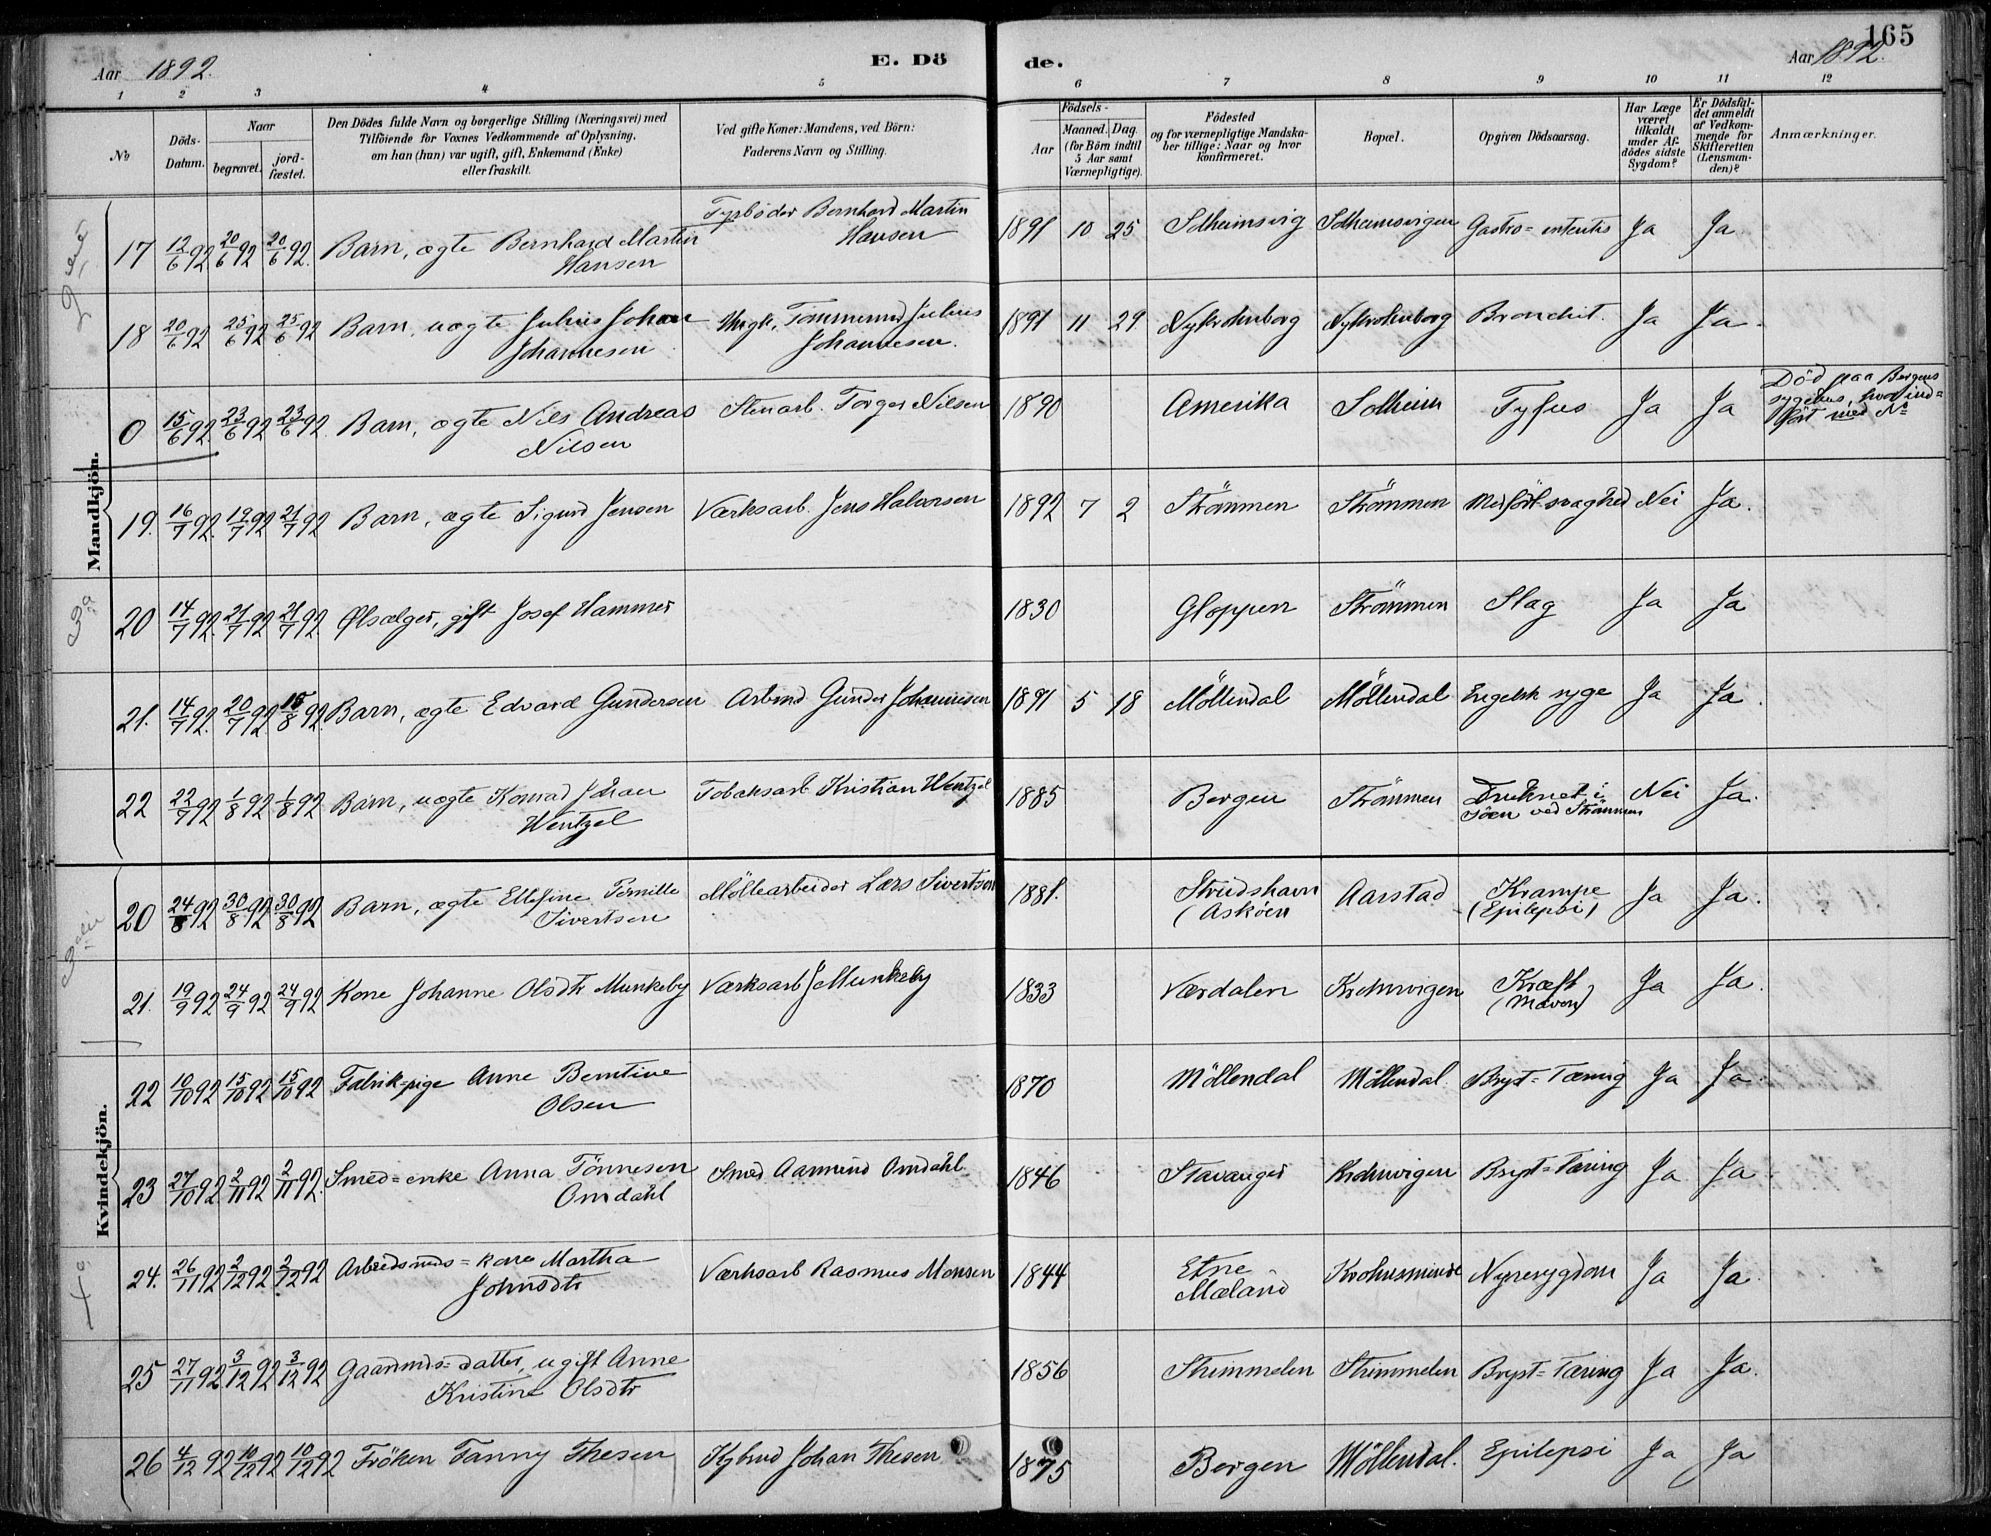 165
Aar 1892.
E. Dö
de.
Aar 1892.
1 2 3 4 5 6 7 8 9 10 11 12
No
Döds-Datum.
Naar
begravet.
jord-fæstet.
Den Dödes fulde Navn og borgerlige Stilling (Næringsvei) med
Tilföiende for Voxnes Vedkommende af Oplysning,
om han (hun) var ugift, gift, Enkemand (Enke)
eller fraskilt.
Ved gifte Koner: Mandens, ved Börn:
Faderens Navn og Stilling.
Födsels-
Aar
Maaned. Dag.
(for Börn indtil
5 Aar samt
Værnepligtige).
Födested
og for værnepligtige Mandska-
ber tillige: Naar og hvor
konfirmeret.
Bopæl.
Opgiven Dödsaarsag.
Har Læge
været
tilkaldt
under Af-
dödes sidste
Sygdom?
Er Dödsfal-
det anmeldt
af Vedkom-
mende for
Skifteretten
(Lensman-
den)?
Anmærkninger.
Mandkjön.
17 12/6 92 20/6 92 20/6 92. Barn, ægte Bernhard Martin Hansen Fyrböder Bernhard Martin Hansen 1891 10 25 Solheimsvig Solheimsvigen Gastro-enteritis Ja Ja
18 20/6 92 25/6 92 25/6 92 Barn, uægte Julius Johan Johannesen Ungk. Tömmermd Julius Johannesen. 1891 11 29 Nykrohnborg Nykrohnborg Bronchit. Ja Ja.
0 15/6 92 23/6 92 23/6 92. Barn, ægte Nils Andreas Nilsen Stenarb. Torger Nilsen 1890 Amerika Solheim Tyfus Ja Ja Död paa Bergens sygehus, hvor ind=fört med No
19. 16/7 92. 19/7 92 21/7 92 Barn, ægte Sigurd Jensen Værksarb. Jens Halvorsen 1892 7 2 Strömmen Strömmen Medfört svaghed Nei Ja.
20 14/7 92. 21/7 92 21/7 92. Ölsælger, gift Josef Hammer 1830 Gloppen Strömmen Slag Ja Ja
21. 14/7 92. 20/7 92. 15/8 92. Barn, ægte Edvard Gundersen Arbmd Gunder Johannesen 1891 5 18 Möllendal Möllendal Engelsk syge Ja Ja.
22 22/7 92 1/8 92 1/8 92 Barn, uægte Konrad Johan Wentzel Tobaksarb Kristian Wentzel 1885 Bergen Strömmen Druknet i Söen ved Strömmen Nei Ja.
Kvindekjön.
20 24/8 92 30/8 92 30/8 92 Barn, ægte Ellefine Pernille Sivertsen Möllearbeider Lars Sivertsen 1881. Strudshavn (Asköen Aarstad Krampe (Epilepsi) Ja Ja.
21. 19/9 92 24/9 92 24/9 92 Kone Johanne Olsdtr Munkeby Værksarb J Munkeby 1833 Værdalen Krohnvigen Kræft (Maven) Ja Ja.
22 10/10 92 15/10 92 15/10 92 Fabrik-pige Anne Berntine Olsen 1870 Möllendal Möllendal. Bryst=Tæring Ja Ja.
23 27/10 92 2/11 92 2/11 92. Smed=enke Anna Tönnesen Omdahl Smed Aamund Omdahl 1846 Stavanger Krohnvigen Bryst=Tæring Ja Ja
24. 26/11 92 2/12 92 2/12 92 Arbeidsmds=kone Martha Johnsdtr Værksarb Rasmus Monsen 1844 Etne Mæland Krohnsminde Nyresygdom Ja Ja
25 27/11 92 3/12 92 3/12 92 Gaardmds=datter, ugift Anne Kristine Olsdtr 1856 Strimmelen Strimmelen Bryst=Tæring Ja Ja.
26 4/12 92 10/12 92 10/12 92 Fröken Fanny Thesen Kjbmd Johan Thesen 1875 Bergen Möllendal. Epilepsi Ja Ja